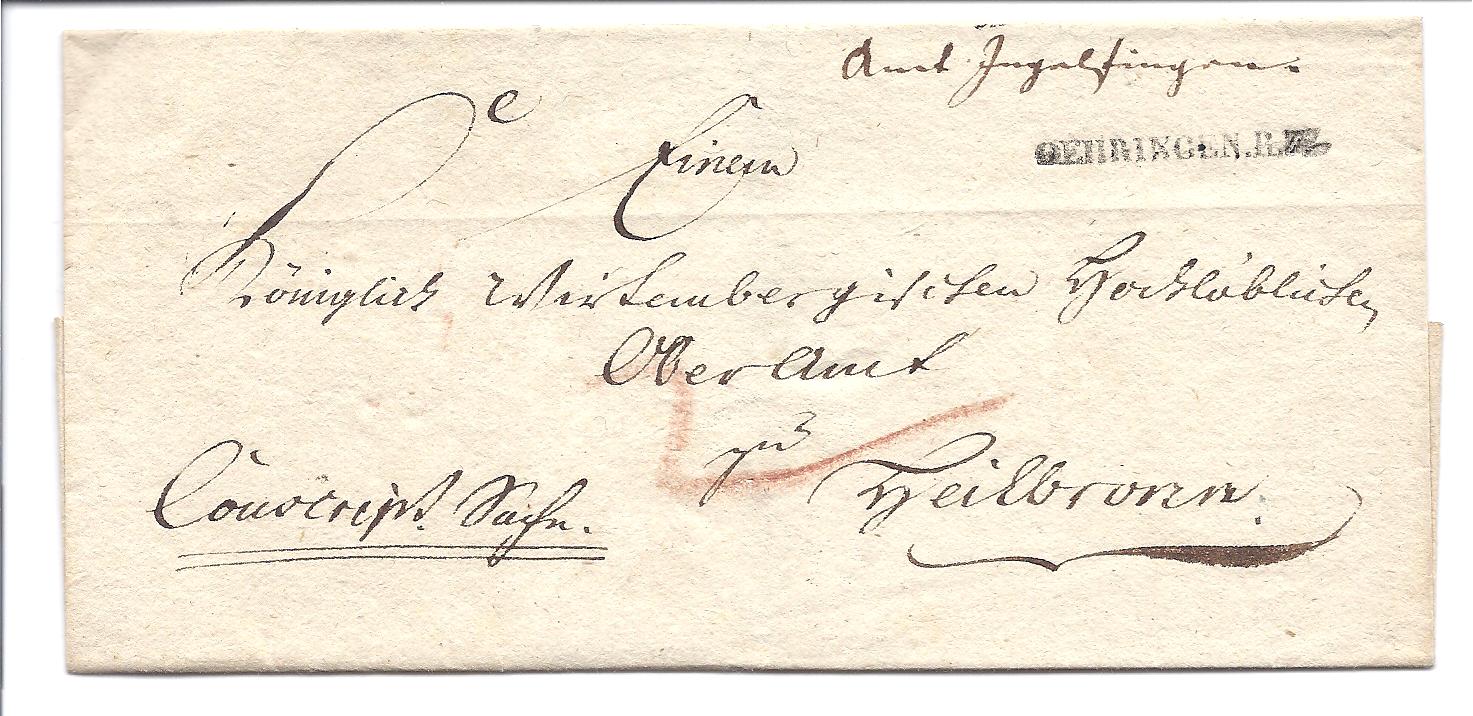 Amt Ingelfingen.
OEHRINGEN.R.
e
Einem
Königlich Wirtembergischen Hochlöblichen
OberAmt
zu
Heilbronn.
Conscript. Sache.